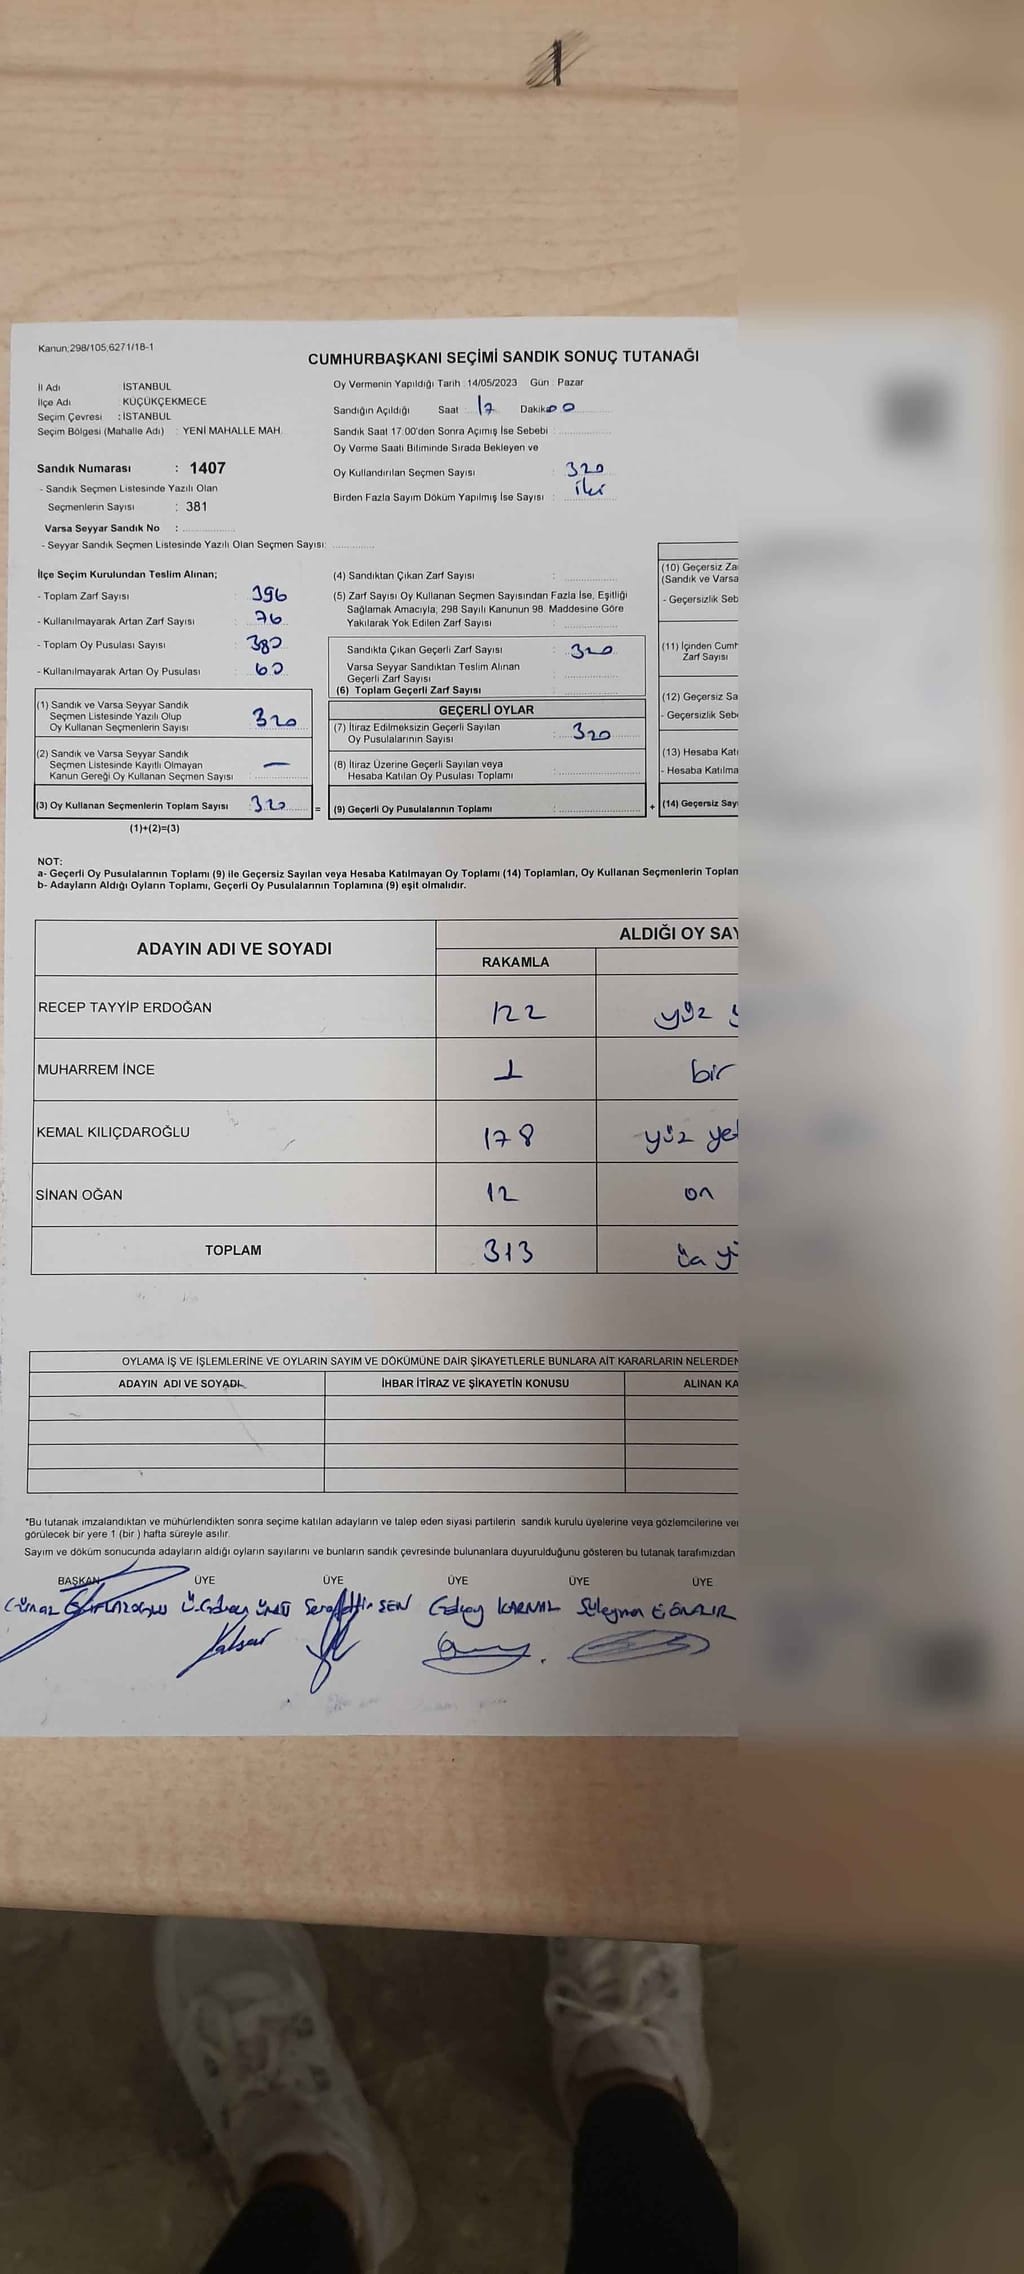 1
Kanun;298/105,6271/18-1
CUMHURBAŞKANI SEÇİMİ SANDIK SONUÇ TUTANAĞI
İl Adı : İSTANBUL
İlçe Adı : KÜÇÜKÇEKMECE
Seçim Çevresi : İSTANBUL
Seçim Bölgesi (Mahalle Adı) : YENİ MAHALLE MAH.
Oy Vermenin Yapıldığı Tarih : 14/05/2023 Gün : Pazar
Sandığın Açıldığı Saat : 17 Dakika 00
Sandık Saat 17:00'den Sonra Açımış İse Sebebi :
Oy Verme Saati Bitiminde Sırada Bekleyen ve
Oy Kullandırılan Seçmen Sayısı : 320
Birden Fazla Sayım Döküm Yapılmış İse Sayısı : iki
Sandık Numarası : 1407
- Sandık Seçmen Listesinde Yazılı Olan
Seçmenlerin Sayısı : 381
Varsa Seyyar Sandık No :
- Seyyar Sandık Seçmen Listesinde Yazılı Olan Seçmen Sayısı:
İlçe Seçim Kurulundan Teslim Alınan;
- Toplam Zarf Sayısı : 396
- Kullanılmayarak Artan Zarf Sayısı : 76
- Toplam Oy Pusulası Sayısı : 380
- Kullanılmayarak Artan Oy Pusulası : 60
(1) Sandık ve Varsa Seyyar Sandık
Seçmen Listesinde Yazılı Olup
Oy Kullanan Seçmenlerin Sayısı 320
(2) Sandık ve Varsa Seyyar Sandık
Seçmen Listesinde Kayıtlı Olmayan
Kanun Gereği Oy Kullanan Seçmen Sayısı : —
(3) Oy Kullanan Seçmenlerin Toplam Sayısı : 320 =
(1)+(2)=(3)
(4) Sandıktan Çıkan Zarf Sayısı :
(5) Zarf Sayısı Oy Kullanan Seçmen Sayısından Fazla İse, Eşitliği
Sağlamak Amacıyla; 298 Sayılı Kanunun 98. Maddesine Göre
Yakılarak Yok Edilen Zarf Sayısı :
Sandıkta Çıkan Geçerli Zarf Sayısı : 320
Varsa Seyyar Sandıktan Teslim Alınan
Geçerli Zarf Sayısı :
(6) Toplam Geçerli Zarf Sayısı :
GEÇERLİ OYLAR
(7) İtiraz Edilmeksizin Geçerli Sayılan
Oy Pusulalarının Sayısı : 320
(8) İtiraz Üzerine Geçerli Sayılan veya
Hesaba Katılan Oy Pusulası Toplamı :
(9) Geçerli Oy Pusulalarının Toplamı : +
(10) Geçersiz Za
(Sandık ve Varsa
- Geçersizlik Seb
(11) İçinden Cumh
Zarf Sayısı
(12) Geçersiz Sa
- Geçersizlik Sebe
(13) Hesaba Katı
- Hesaba Katılma
(14) Geçersiz Say
NOT:
a- Geçerli Oy Pusulalarının Toplamı (9) ile Geçersiz Sayılan veya Hesaba Katılmayan Oy Toplamı (14) Toplamları, Oy Kullanan Seçmenlerin Toplan
b- Adayların Aldığı Oyların Toplamı, Geçerli Oy Pusulalarının Toplamına (9) eşit olmalıdır.
ADAYIN ADI VE SOYADI ALDIĞI OY SAY
RAKAMLA
RECEP TAYYİP ERDOĞAN 122 yüz y
MUHARREM İNCE 1 bir
KEMAL KILIÇDAROĞLU 178 yüz yet
SİNAN OĞAN 12 on
TOPLAM 313 üç yü
OYLAMA İŞ VE İŞLEMLERİNE VE OYLARIN SAYIM VE DÖKÜMÜNE DAİR ŞİKAYETLERLE BUNLARA AİT KARARLARIN NELERDEN
ADAYIN ADI VE SOYADI İHBAR İTİRAZ VE ŞİKAYETİN KONUSU ALINAN KA
*Bu tutanak imzalandıktan ve mühürlendikten sonra seçime katılan adayların ve talep eden siyasi partilerin sandık kurulu üyelerine veya gözlemcilerine ve
görülecek bir yere 1 (bir ) hafta süreyle asılır.
Sayım ve döküm sonucunda adayların aldığı oyların sayılarını ve bunların sandık çevresinde bulunanlara duyurulduğunu gösteren bu tutanak tarafımızdan
BAŞKAN ÜYE ÜYE ÜYE ÜYE ÜYE
ŞEN Süleyman